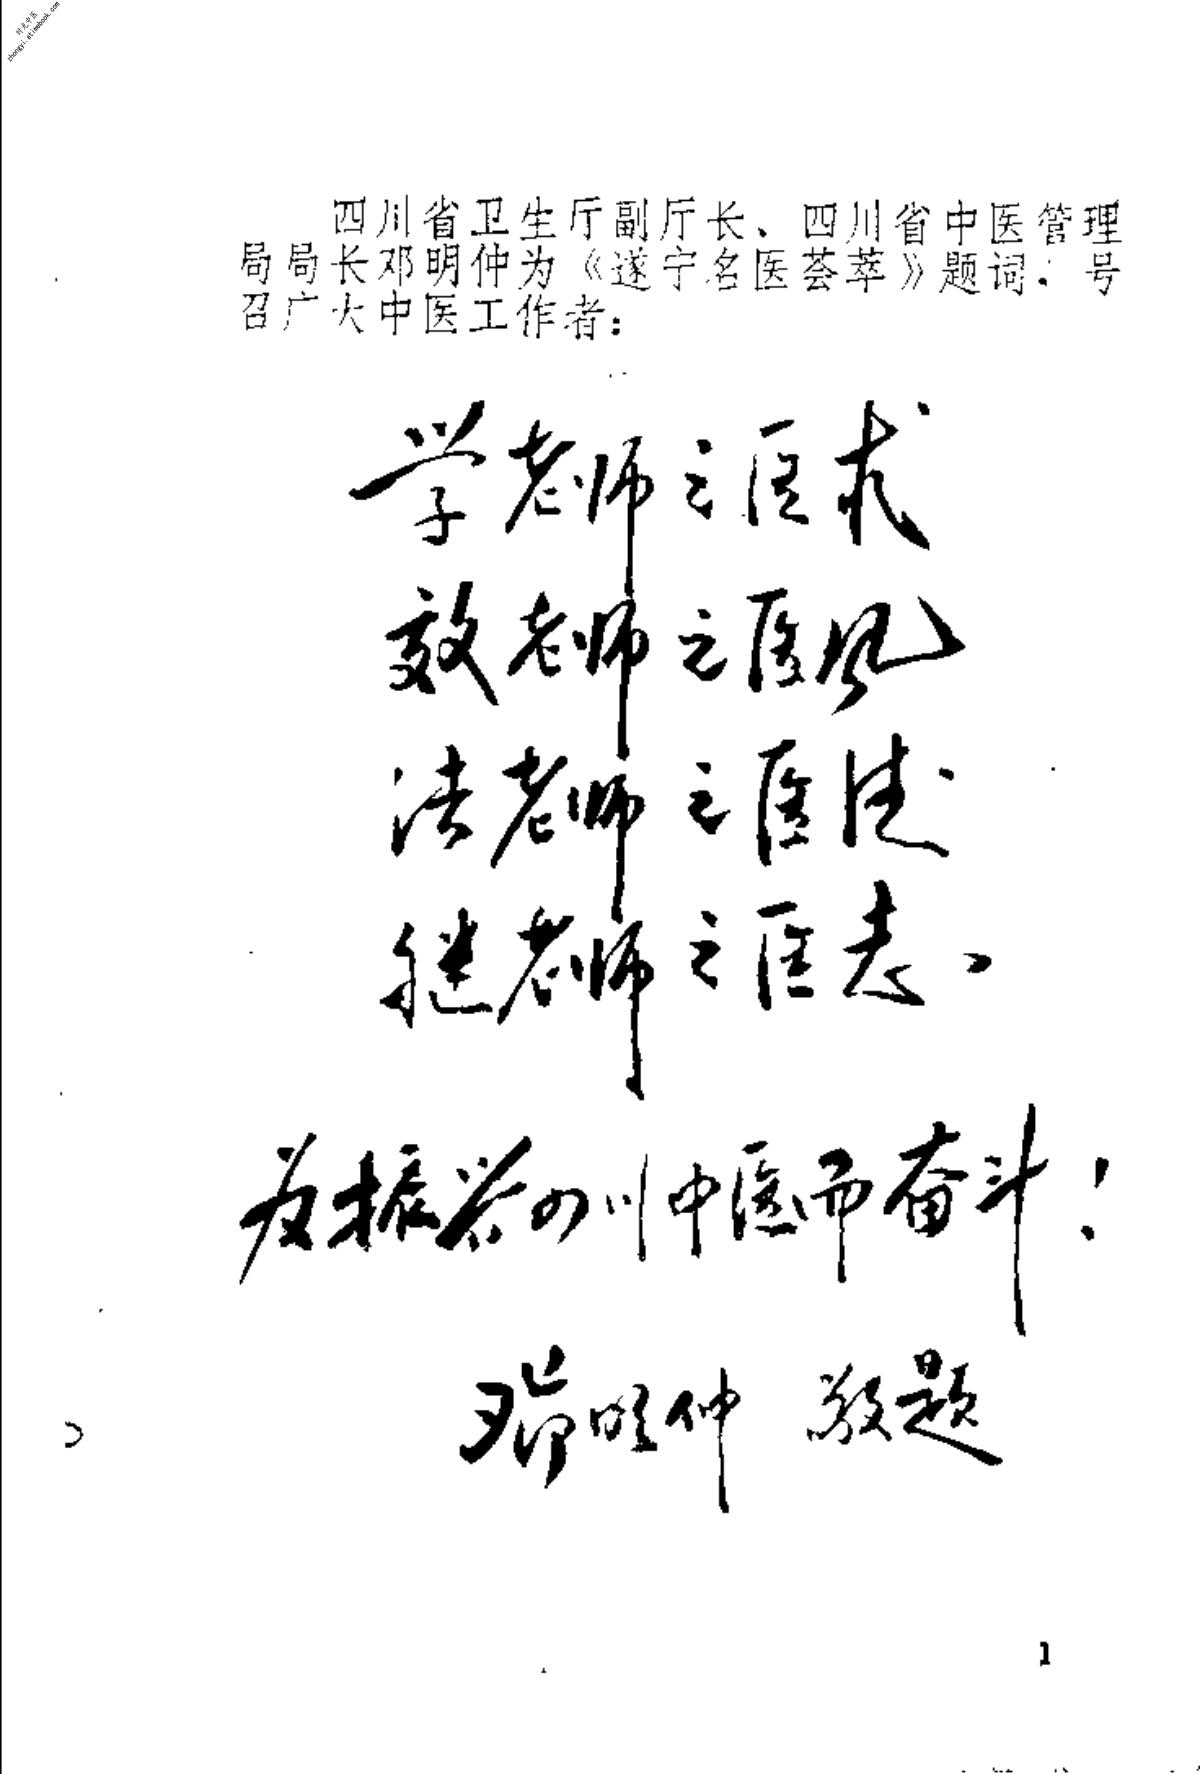 时光中医
zhongyi.etimebook.com
四川省卫生厅副厅长、四川省中医管理
局局长邓明仲为《遂宁名医荟萃》题词，号
召广大中医工作者：
学老师之医术
效老师之医风
法老师之医德
继老师之医志、
为振兴四川中医而奋斗！
邓明仲 敬题
1